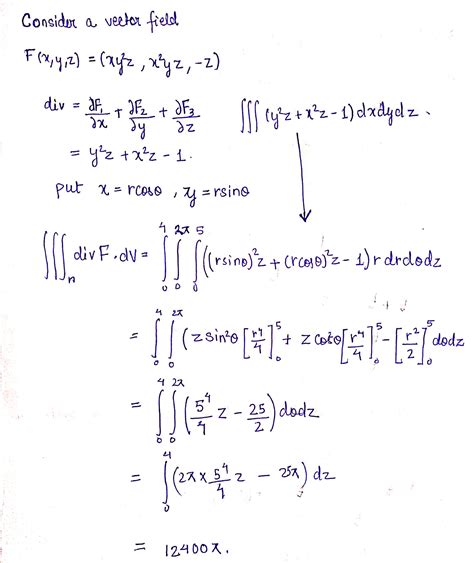 Consider a vector field
F(x,y,z) = (xy²z, x²yz, -z)
div = ∂F₁/∂x + ∂F₂/∂y + ∂F₃/∂z   ∭(y²z+x²z-1)dxdydz.
= y²z + x²z - 1.
put x = rcosθ, y = rsinθ
∭ₙ divF.dV = ∫₀⁴ ∫₀²ᵖⁱ ∫₀⁵ ((rsinθ)²z + (rcosθ)²z - 1) r drdθdz
= ∫₀⁴ ∫₀^2π (z sin²θ [r⁴/4]₀⁵ + z cos²θ [r⁴/4]₀⁵ - [r²/2]₀⁵ dθdz
= ∫₀⁴ ∫₀^2π (5⁴/4 z - 25/2) dθdz
= ∫₀⁴ (2π × 5⁴/4 z - 25π) dz
= 12400π.